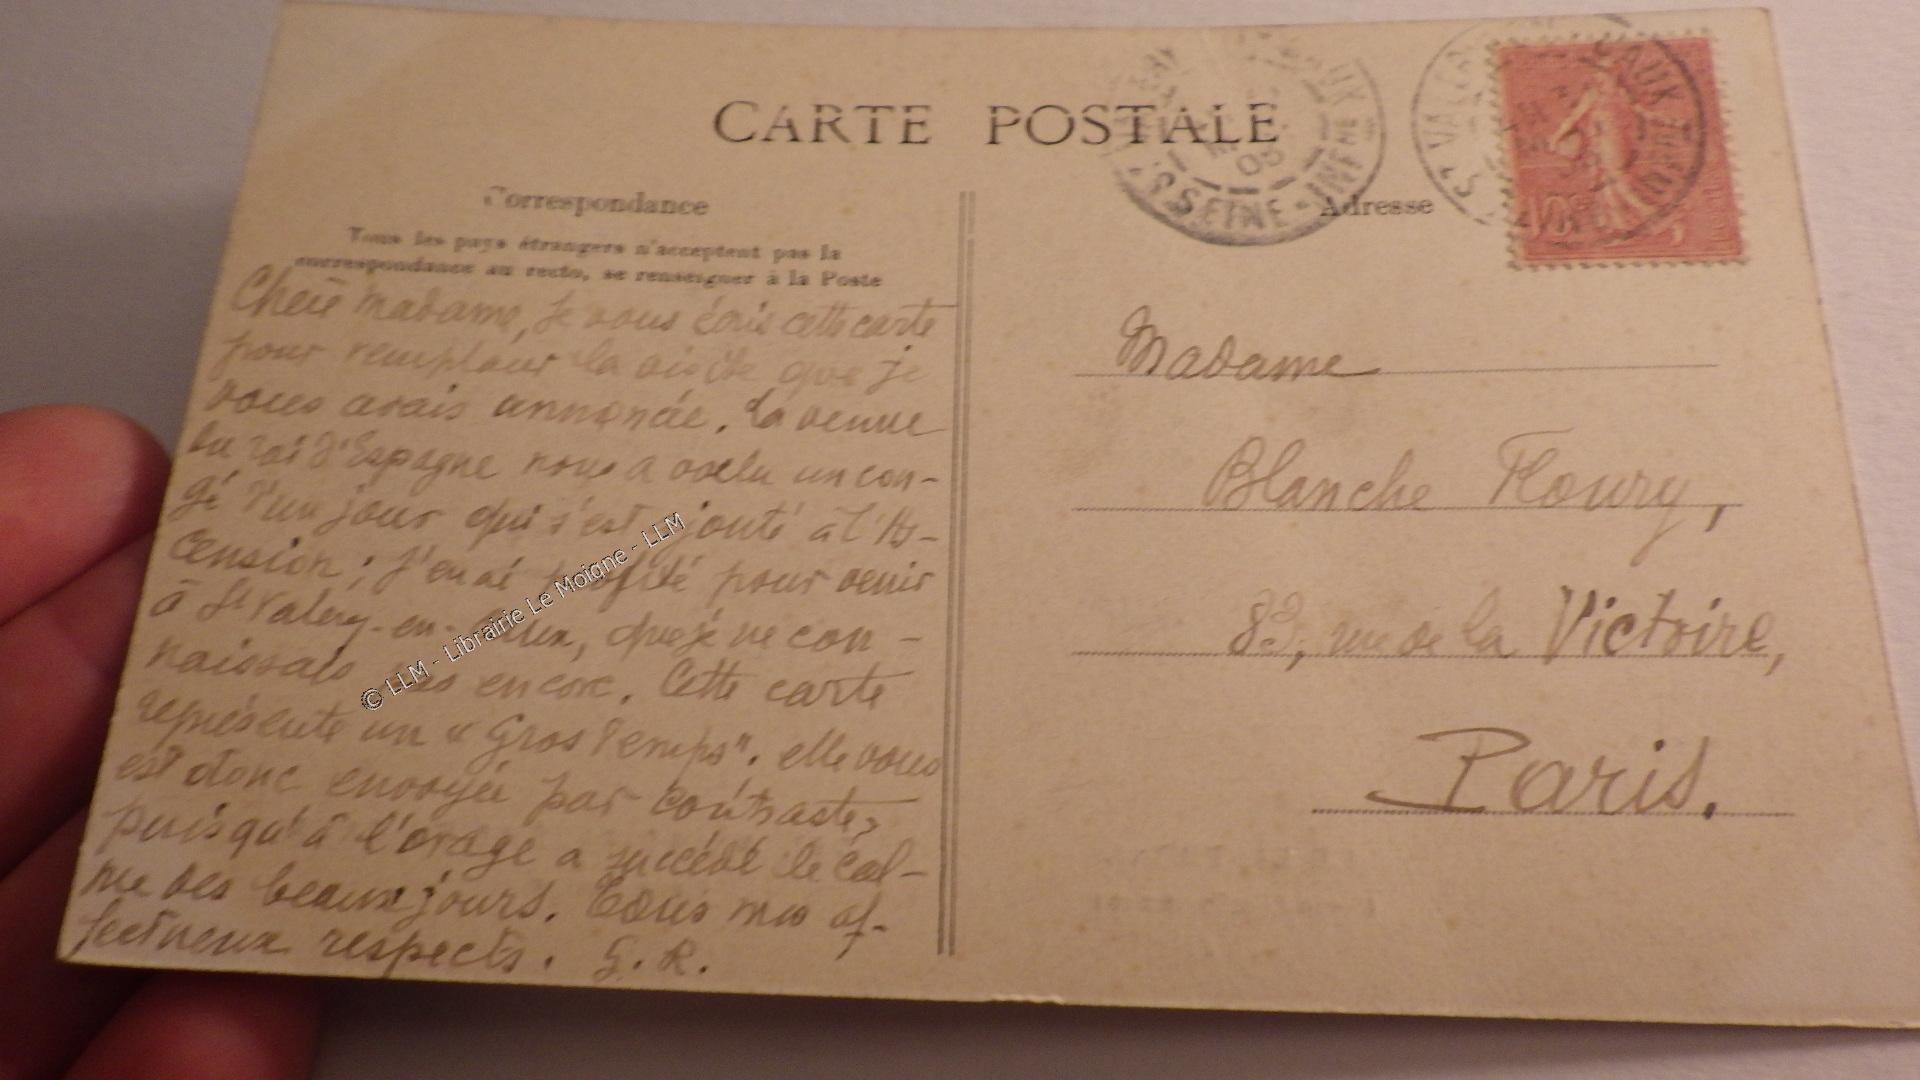 CARTE POSTALE
Correspondance
Tous les pays étrangers n'acceptent pas la
correspondance au recto, se renseigner à la Poste
Adresse
Chère Madame, je vous écris cette carte
pour remplacer la visite que je
vous avais annoncée. La venue
du roi d'Espagne nous a valu un con-
gé d'un jour qui s'est jouté à l'As-
cension ; j'en ai profité pour venir
à St Valery-en-Caux, que je ne con-
naissais pas encore. Cette carte
représente un « Gros Temps ». elle vous
est donc envoyée par contraste,
puisqu'à l'orage a succédé le cal-
me des beaux jours. Tous mes af-
fectueux respects. G. R.
Madame
Blanche Floury,
83, rue de la Victoire,
Paris.
ST VALERY
CAUX
SEINE-INFRE
05
10c
© LLM - Librairie Le Moigne - LLM